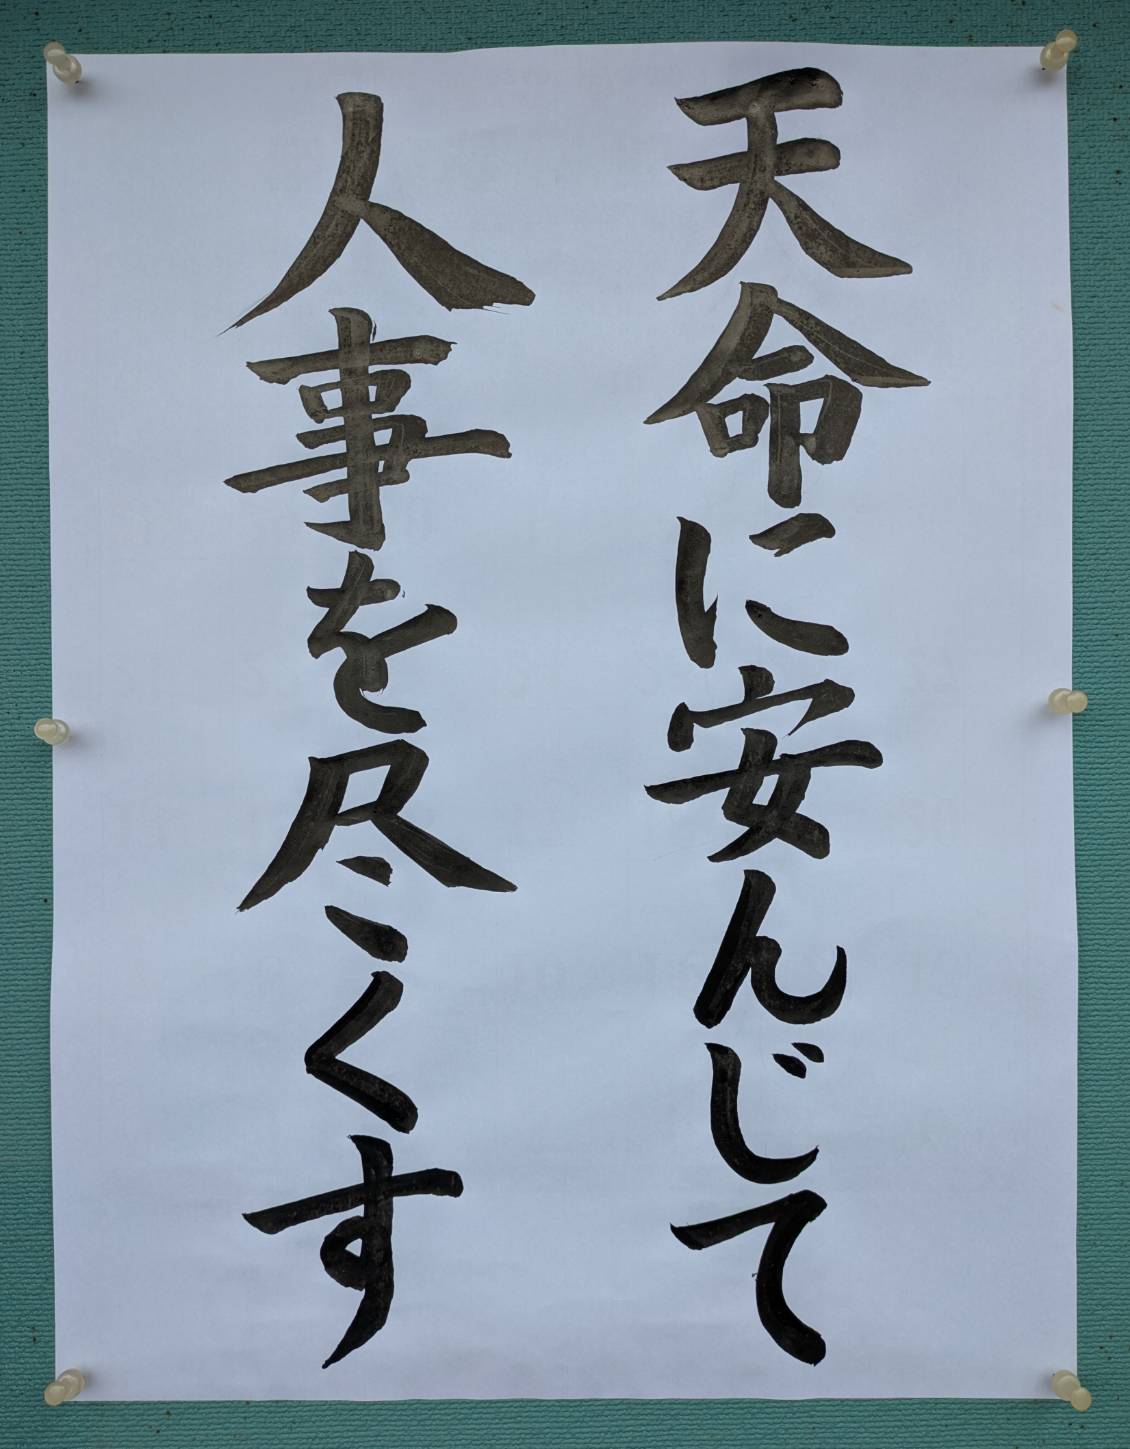 天命に安んじて
人事を尽くす